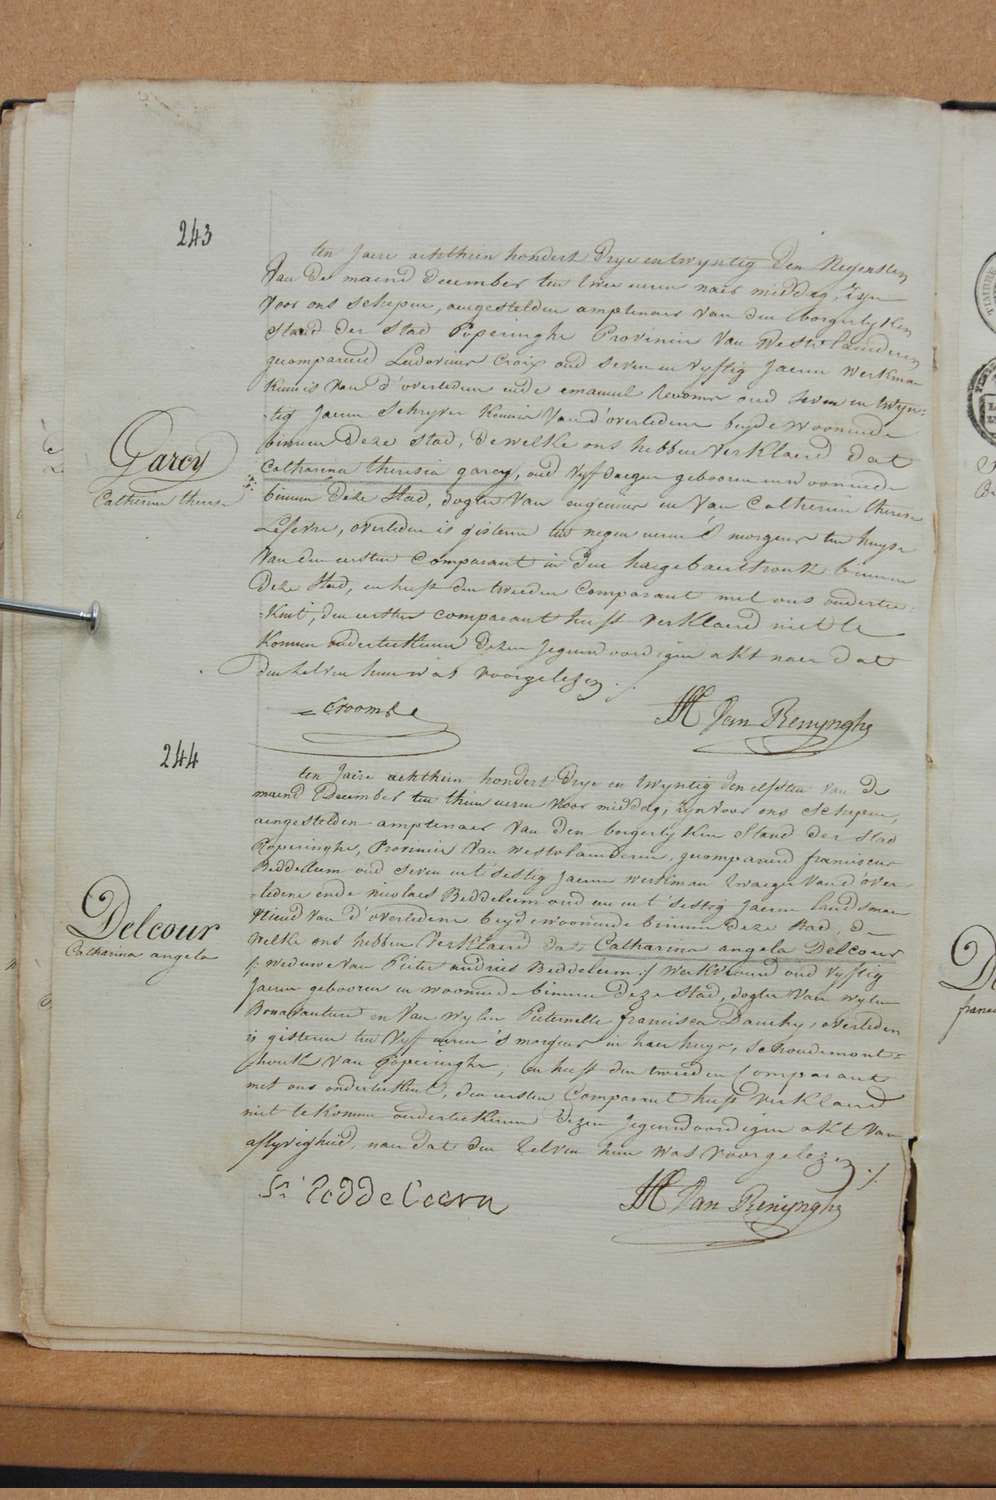 243
ten Jaere achthien hondert drye en twyntig den Negensten
Van de maend December ten twee uren naer middag, zyn
voor ons schepen, aengestelden amptenaer van den borgerlyken
Stand der Stad Poperinghe Provincie van Westvlaenderen
gecompareerd Ludovicus Croix oud seven en vyftig Jaeren werkman
Kennis van d'overledene ende emanuel oud seven en twyn=
-tig Jaeren Schryver Kennis van d'overledene beyde woonende
binnen deze Stad, dewelke ons hebben verklaerd dat
Garcy
Catherine therese
Catharina theresia garcy, oud vyf daegen gebooren en woonende
binnen deze Stad, dogter van eugenius en van Catherine therese
Lefevre, overleden is gisteren ten negen uren 's morgens ten huyse
van den eersten Comparant in den binnen
deze Stad, en heeft den tweeden Comparant met ons onderteek=
=Kent, den eersten comparant heeft verklaerd niet te
konnen onderteekenen dezen Jegenwoordigen akt naer dat
den zelven hun was voorgelezen ./.
Croombe
Van Renynghe
244
ten Jaere achthien hondert drye en twyntig den elfsten van de
maend December ten thien uren voor middag, zyn voor ons schepen,
aengestelden amptenaer van den borgerlyken Stand der Stad
Poperinghe, Provincie van Westvlaenderen, gecompareerd franciscus
Beddeleem oud seven en t'sestig Jaeren werkman zwaeger van d'over-
-ledene ende nicolaes Beddeleem oud een en t'sestig Jaeren landsman
vriend van d'overledene beyde woonende binnen deze Stad, de
Delcour
Catharina angela
welke ons hebben verklaerd dat Catharina angela Delcour
/: weduwe van Pieter andries Beddeleem :/ werkvrouwe oud vyftig
Jaeren gebooren en woonende binnen deze Stad, dogter van wylen
Bonaventure en van wylen Pieternelle francisca Dauchy, overleden
is gisteren ten vyf uren 's morgens in haer huys, schoudemont=
=houk van Poperinghe; en heeft den tweeden Comparant
met ons onderteekent, den eersten Comparant heeft verklaerd
niet te konnen onderteekenen dezen Jegenwoordigen akt van
aflyvigheid, naer dat den zelven hun was voorgelezen ./.
Van Renynghe